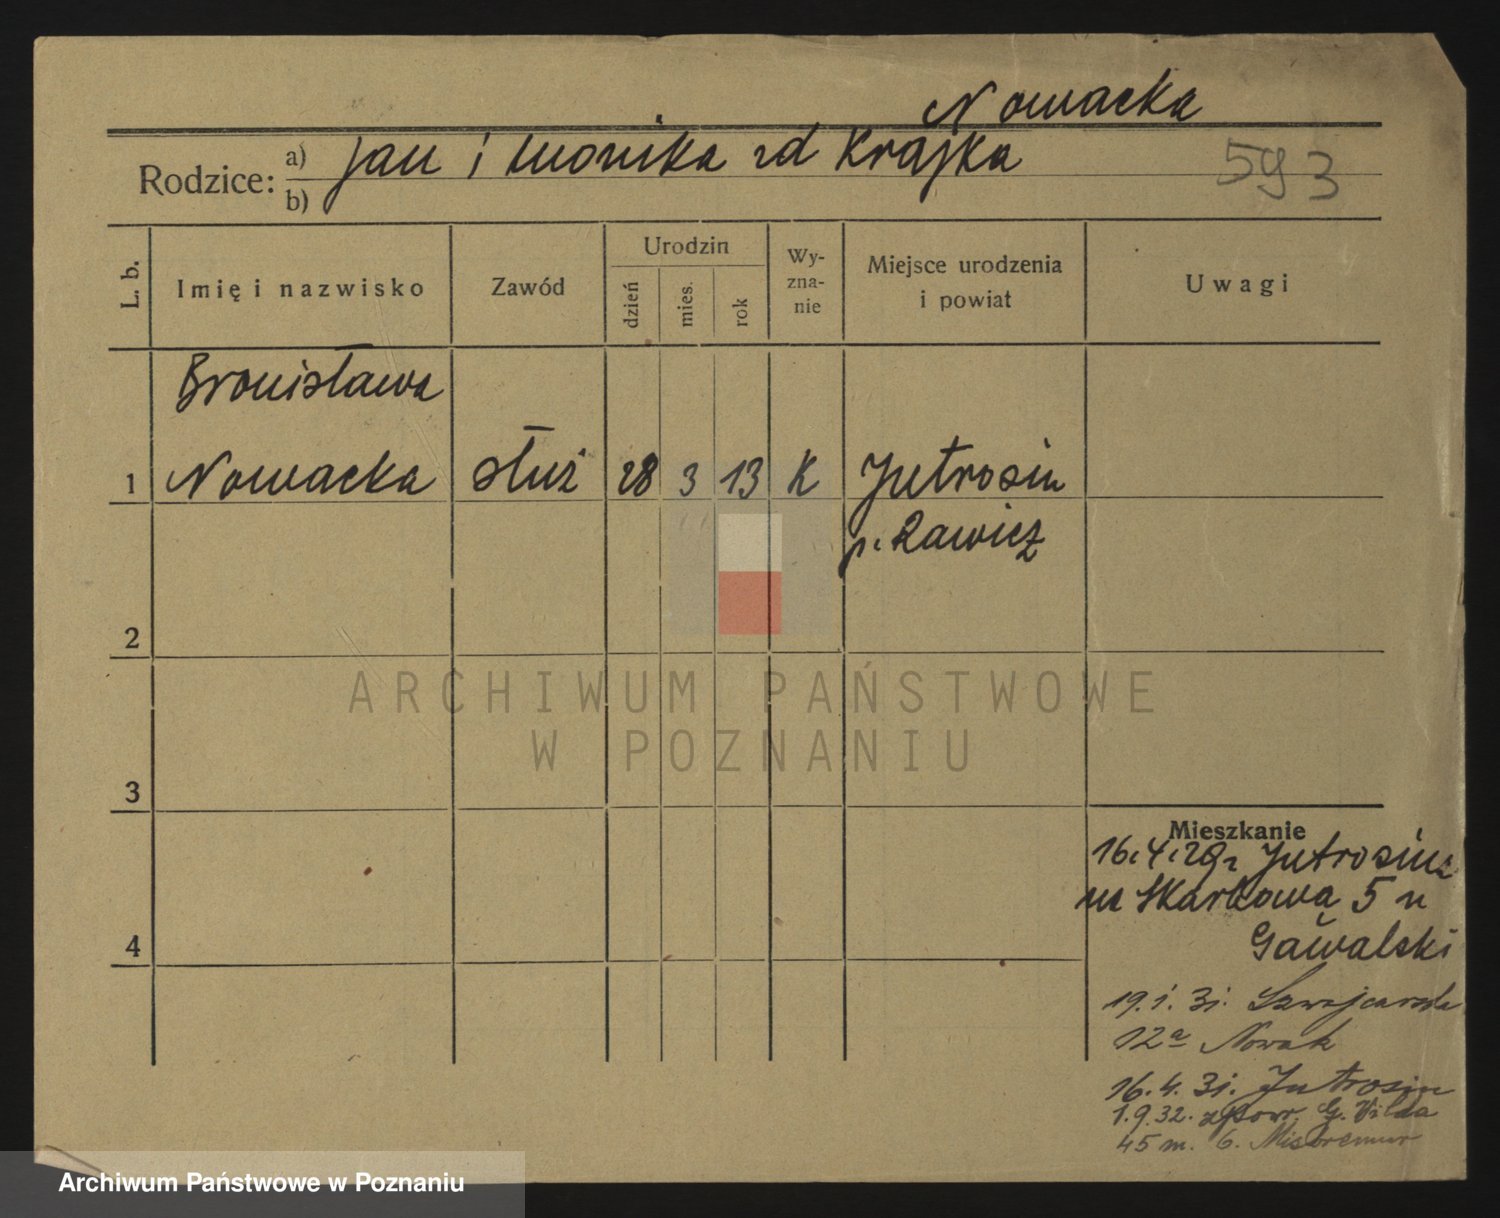 Nowacka
Rodzice: a) Jan i Monika zd Krajka
b)
593
L. b.
Imię i nazwisko
Zawód
Urodzin
dzień
mies.
rok
Wy-
zna-
nie
Miejsce urodzenia
i powiat
Uwagi
Bronisława
1 Nowacka służ 28 3 13 K Jutrosin
p. Rawicz
2
3
4
Mieszkanie
16.4.29. Jutrosin
na Skarbowa 5 u
Gawalski
19.1.31. Szwajcarska
12a Nowak
16.4.31. Jutrosin
1.9.32. zpowr. G. Wilda
45 m. 6.
ARCHIWUM PAŃSTWOWE
W POZNANIU
Archiwum Państwowe w Poznaniu